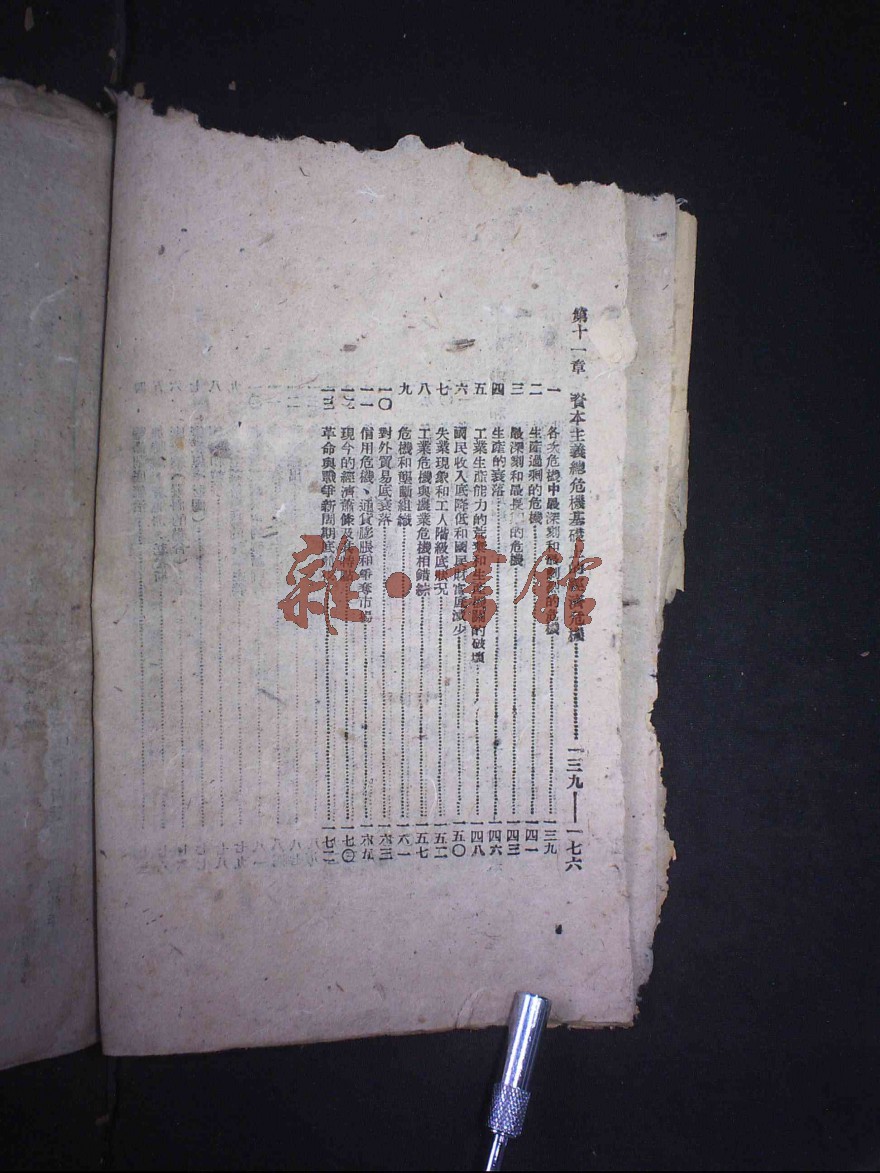 第十一章 資本主義總危機基礎上的經濟危機…………一三九——一七六
一 各次危機中最深刻和最 的危機…………一三九
二 生產過剩的危機…………一四一
三 最深刻和最長 的危機…………一四三
四 生產的衰落…………一四六
五 工業生產能力的荒棄和生產 的破壞…………一四八
六 國民收入底降低和國民財富底減少…………一五〇
七 失業現象和工人階級底狀況…………一五二
八 工業危機與農業危機相錯綜…………一五七
九 危機和壟斷組織…………一六一
一〇 對外貿易底衰落…………一六三
一一 信用危機、通貨膨脹和爭奪市場…………一六五
一二 現今的經濟蕭條及其特點…………一七〇
一三 革命與戰爭新周期底 …………一七二
雜·書館